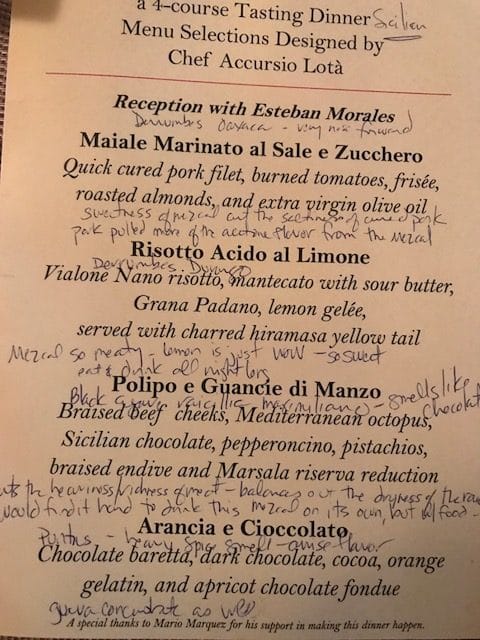 a 4-course Tasting Dinner Sicilian
Menu Selections Designed by
Chef Accursio Lotà
Reception with Esteban Morales
Derrumbes Oaxaca - very nose forward
Maiale Marinato al Sale e Zucchero
Quick cured pork filet, burned tomatoes, frisée,
roasted almonds, and extra virgin olive oil
sweetness of mezcal cut the saltiness of cured pork
pork pulled more of the acetone flavor from the mezcal
Risotto Acido al Limone
Derrumbes Durango
Vialone Nano risotto, mantecato with sour butter,
Grana Padano, lemon gelée,
served with charred hiramasa yellow tail
Mezcal so meaty - lemon is just wow - so sweet
eat & drink all night long
Polipo e Guancie di Manzo
Black agave maximiliano - smells like chocolate
Braised beef cheeks, Mediterranean octopus,
Sicilian chocolate, pepperoncino, pistachios,
braised endive and Marsala riserva reduction
the heaviness/richness of meat - balances out the dryness of the
would find it hard to drink this mezcal on its own, but w/ food -
Arancia e Cioccolato
heavy spice smell - anise flavor
Chocolate baretta, dark chocolate, cocoa, orange
gelatin, and apricot chocolate fondue
guava concentrate as well
A special thanks to Mario Marquez for his support in making this dinner happen.